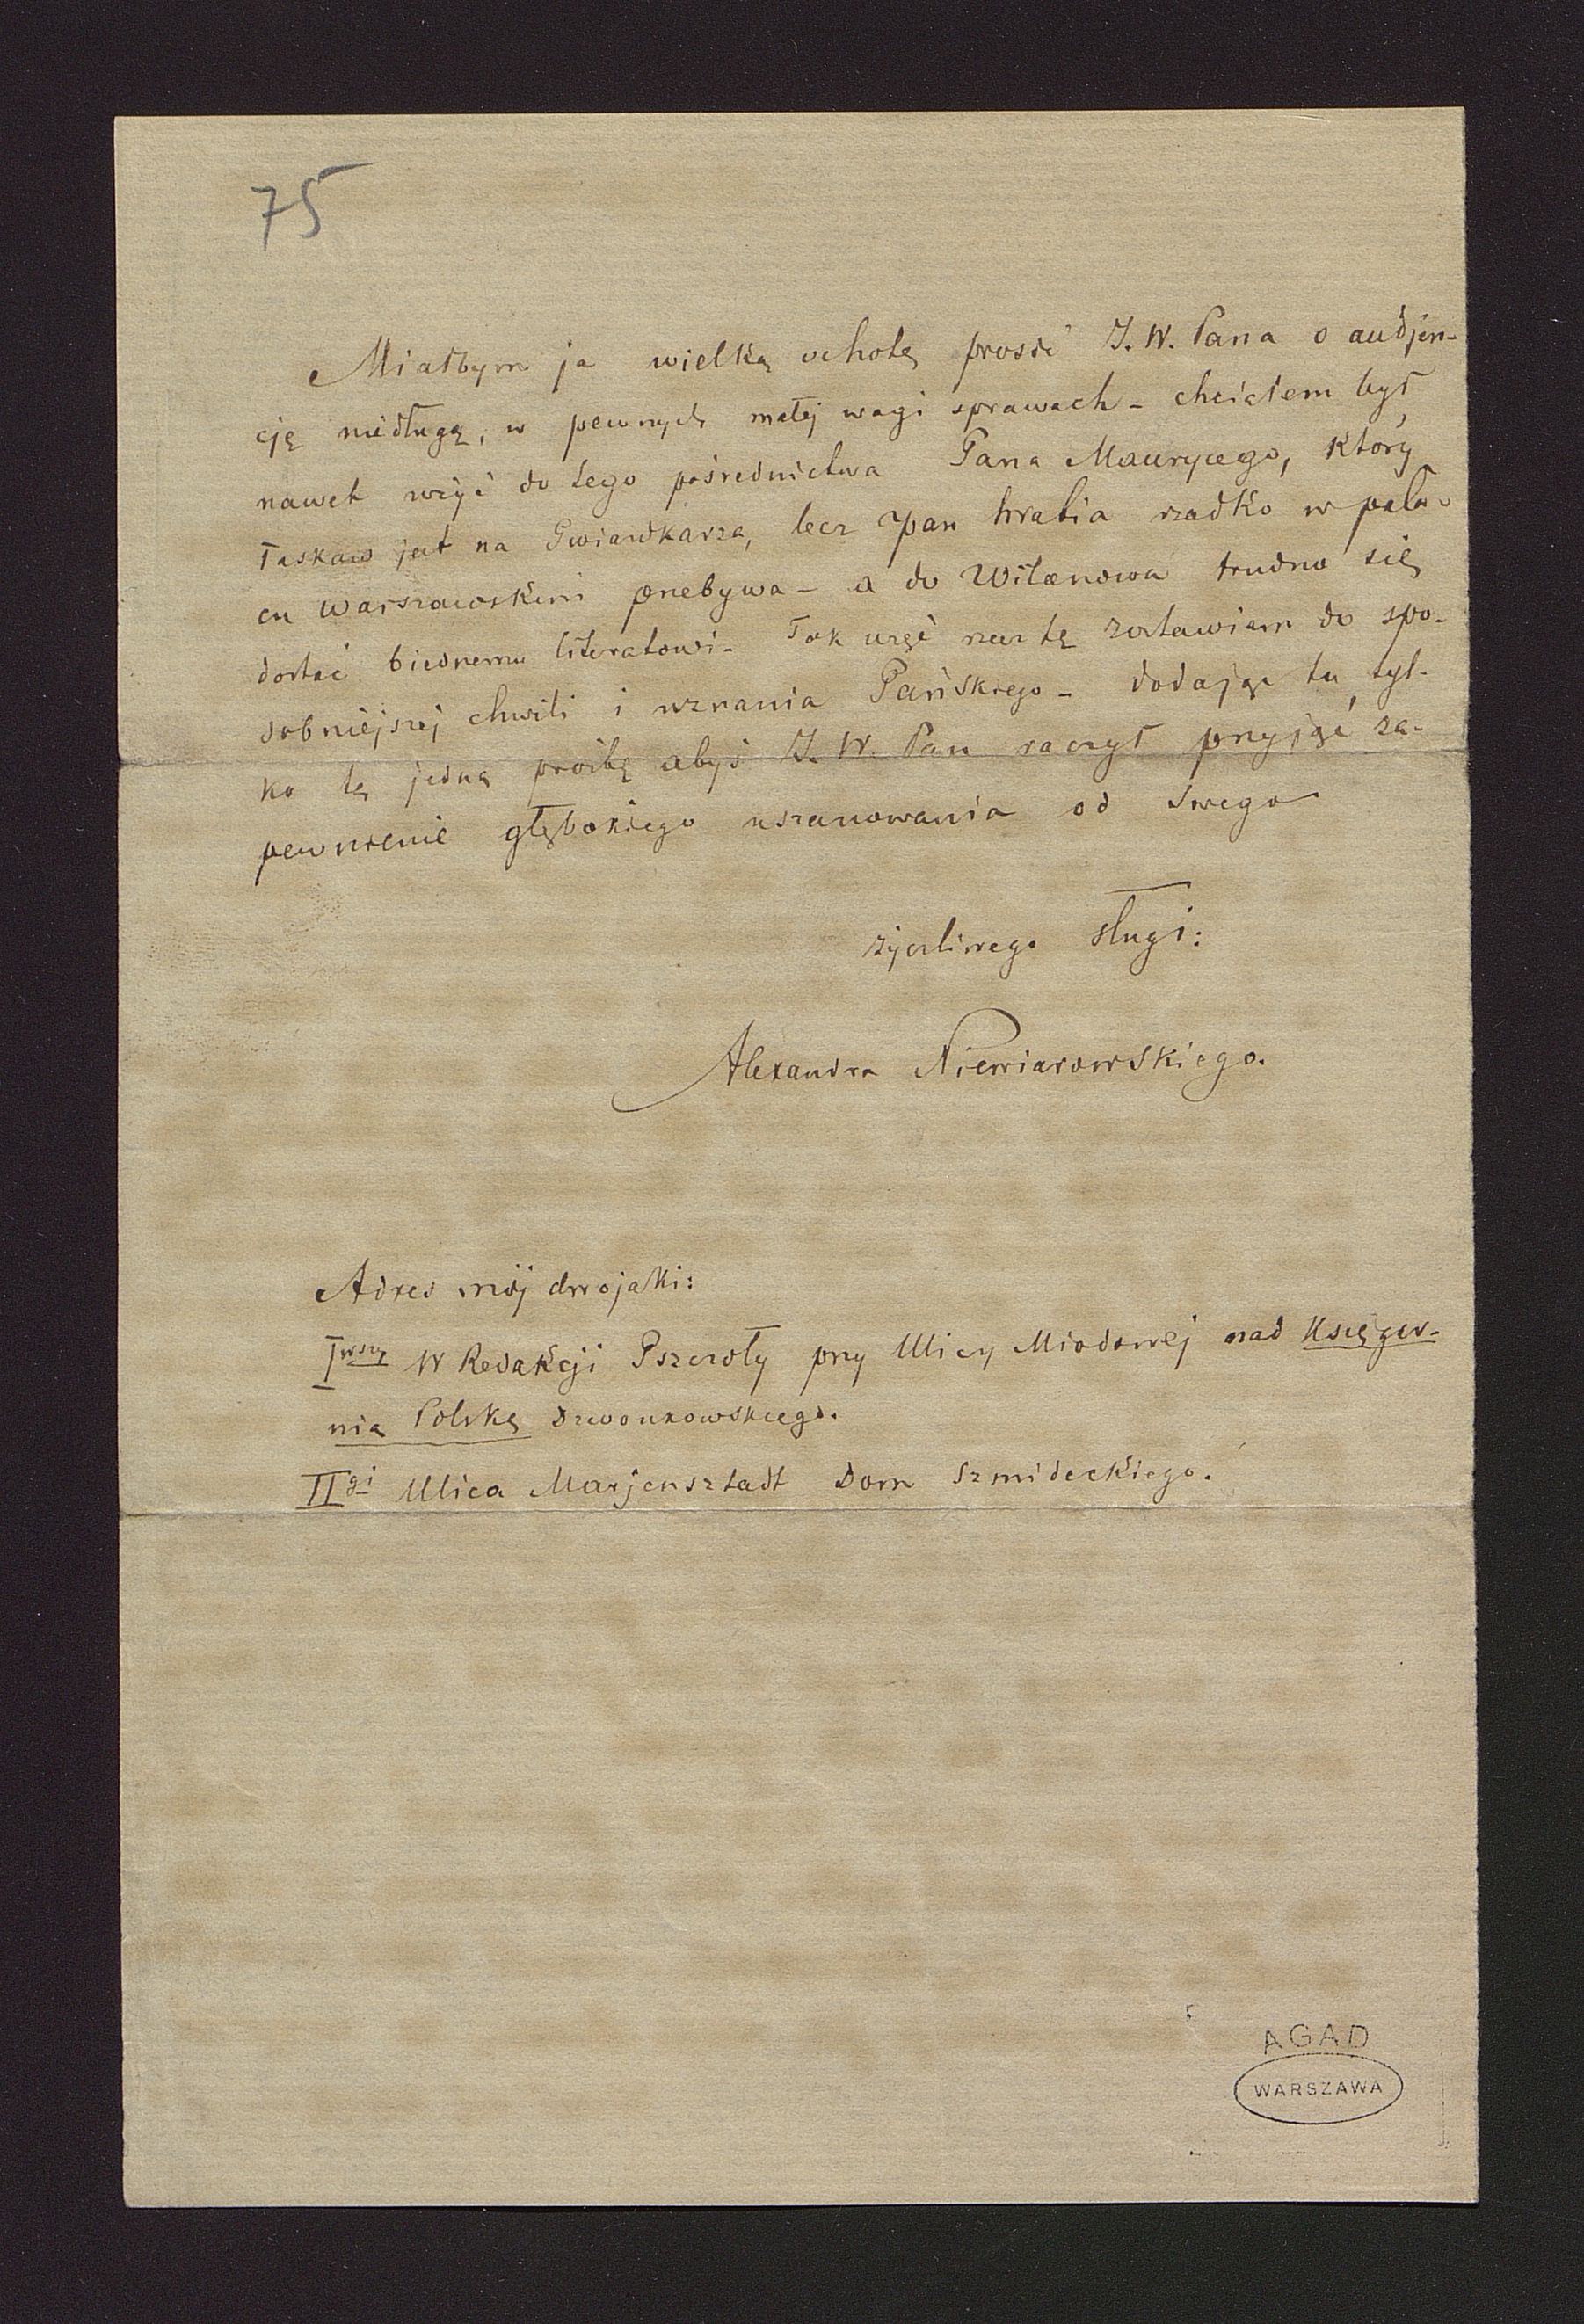 75
Miałbym ja wielką ochotę prosić J. W. Pana o audjen-
cję niedługą, w pewnych małej wagi sprawach - chciałem był
nawet użyć do tego pośrednictwa Pana Maurycego, który
łaskaw jest na Gwiazdkarza, lecz Pan hrabia rzadko w pała-
cu warszawskim przebywa - a do Wilanowa trudno się
dostać biednemu literatowi - Tak więc rzecz tę zostawiam do spo-
sobniejszej chwili i uznania Pańskiego - dodając tu tyl-
ko tę jedną prośbę abyś J. W. Pan raczył przyjąć za-
pewnienie głębokiego uszanowania od swego
życzliwego sługi:
Alexandra Niewiarowskiego.
Adres mój dwojaki:
Iwszy W Redakcji Pszczoły przy Ulicy Miodowej nad Księgar-
nią Polską Dzwonkowskiego.
IIgi Ulica Marjensztadt Dom Szmideckiego.
AGAD
WARSZAWA